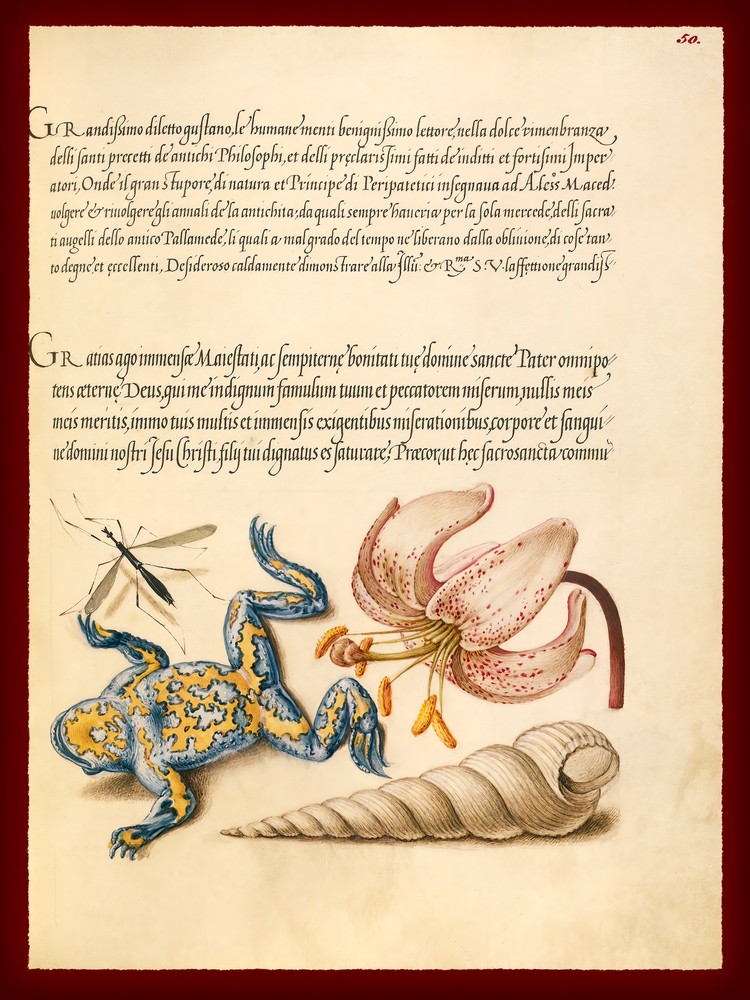 50.
GRandißimo diletto gustano, le humane menti benignißimo lettore, nella dolce rimenbranza
delli santi precetti de antichi Philosophi, et delli pręclarissimi fatti de inditti et fortisimi Imper
atori, Onde il gran stupore, di natura et Principe di Peripatetici insegnaua ad Aless. Maced.
uolgere & riuolgere gli annali de la antichita, da quali sempre haueria per la sola mercede, delli sacra
ti augelli dello antico Pallamede, li quali a mal grado del tempo ne liberano dalla obliuione, di cose tan
to degne et eccellenti, Desideroso caldamente dimonstrare alla Illu: & Rma S. V. la ffettione grandiss
GRatias ago immensæ Maiestati, ac sempiternę bonitati tuę domine sancte Pater omnipo
tens æternę Deus, qui me indignum famulum tuum et peccatorem miserum, nullis meis
meis meritis, immo tuis multis et immensis exigentibus miserationibus, corpore et sangui
ne domini nostri Jesu Christi, filij tui dignatus es saturare; Præcor, ut hęc sacrosancta commu